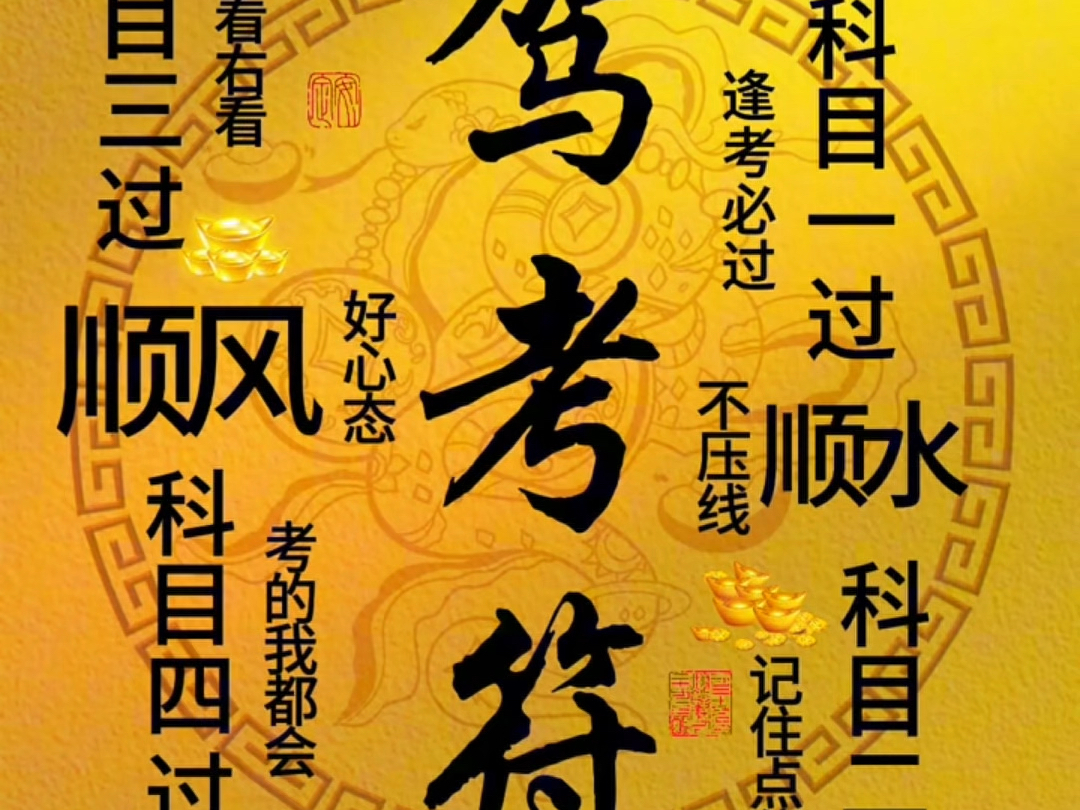 科目一过
逢考必过
顺水
不压线
科目二
记住点
驾考符
目三过
看右看
顺风
好心态
科目四过
考的我都会